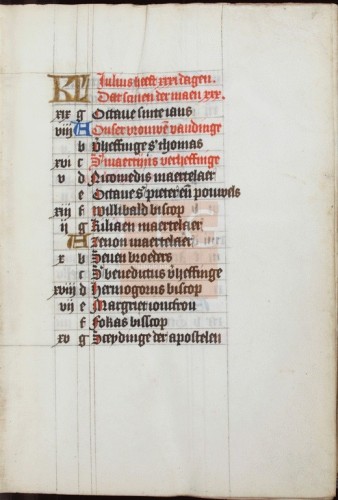 KL Julius heeft xxxi dagen.
Dat scijen der maen xxx.
xix g Octaue sinte ians
viij A Onser vrouwen vandinge
b Vheffinge s' thomas
xvi c S' maertijns verheffinge
v d Nicomedis maertelaer
e Octaue s' pieter en pouwels
xiij f Willibald biscop
ij g Kiliaen maertelaer
A Zenon maertelaer
x b Seuen broeders
c S' benedictus vheffinge
xviij d Hermogorus biscop
vij e Margriet ioncfrou
f Fokas bisscop
xv g Sceydinge der apostelen